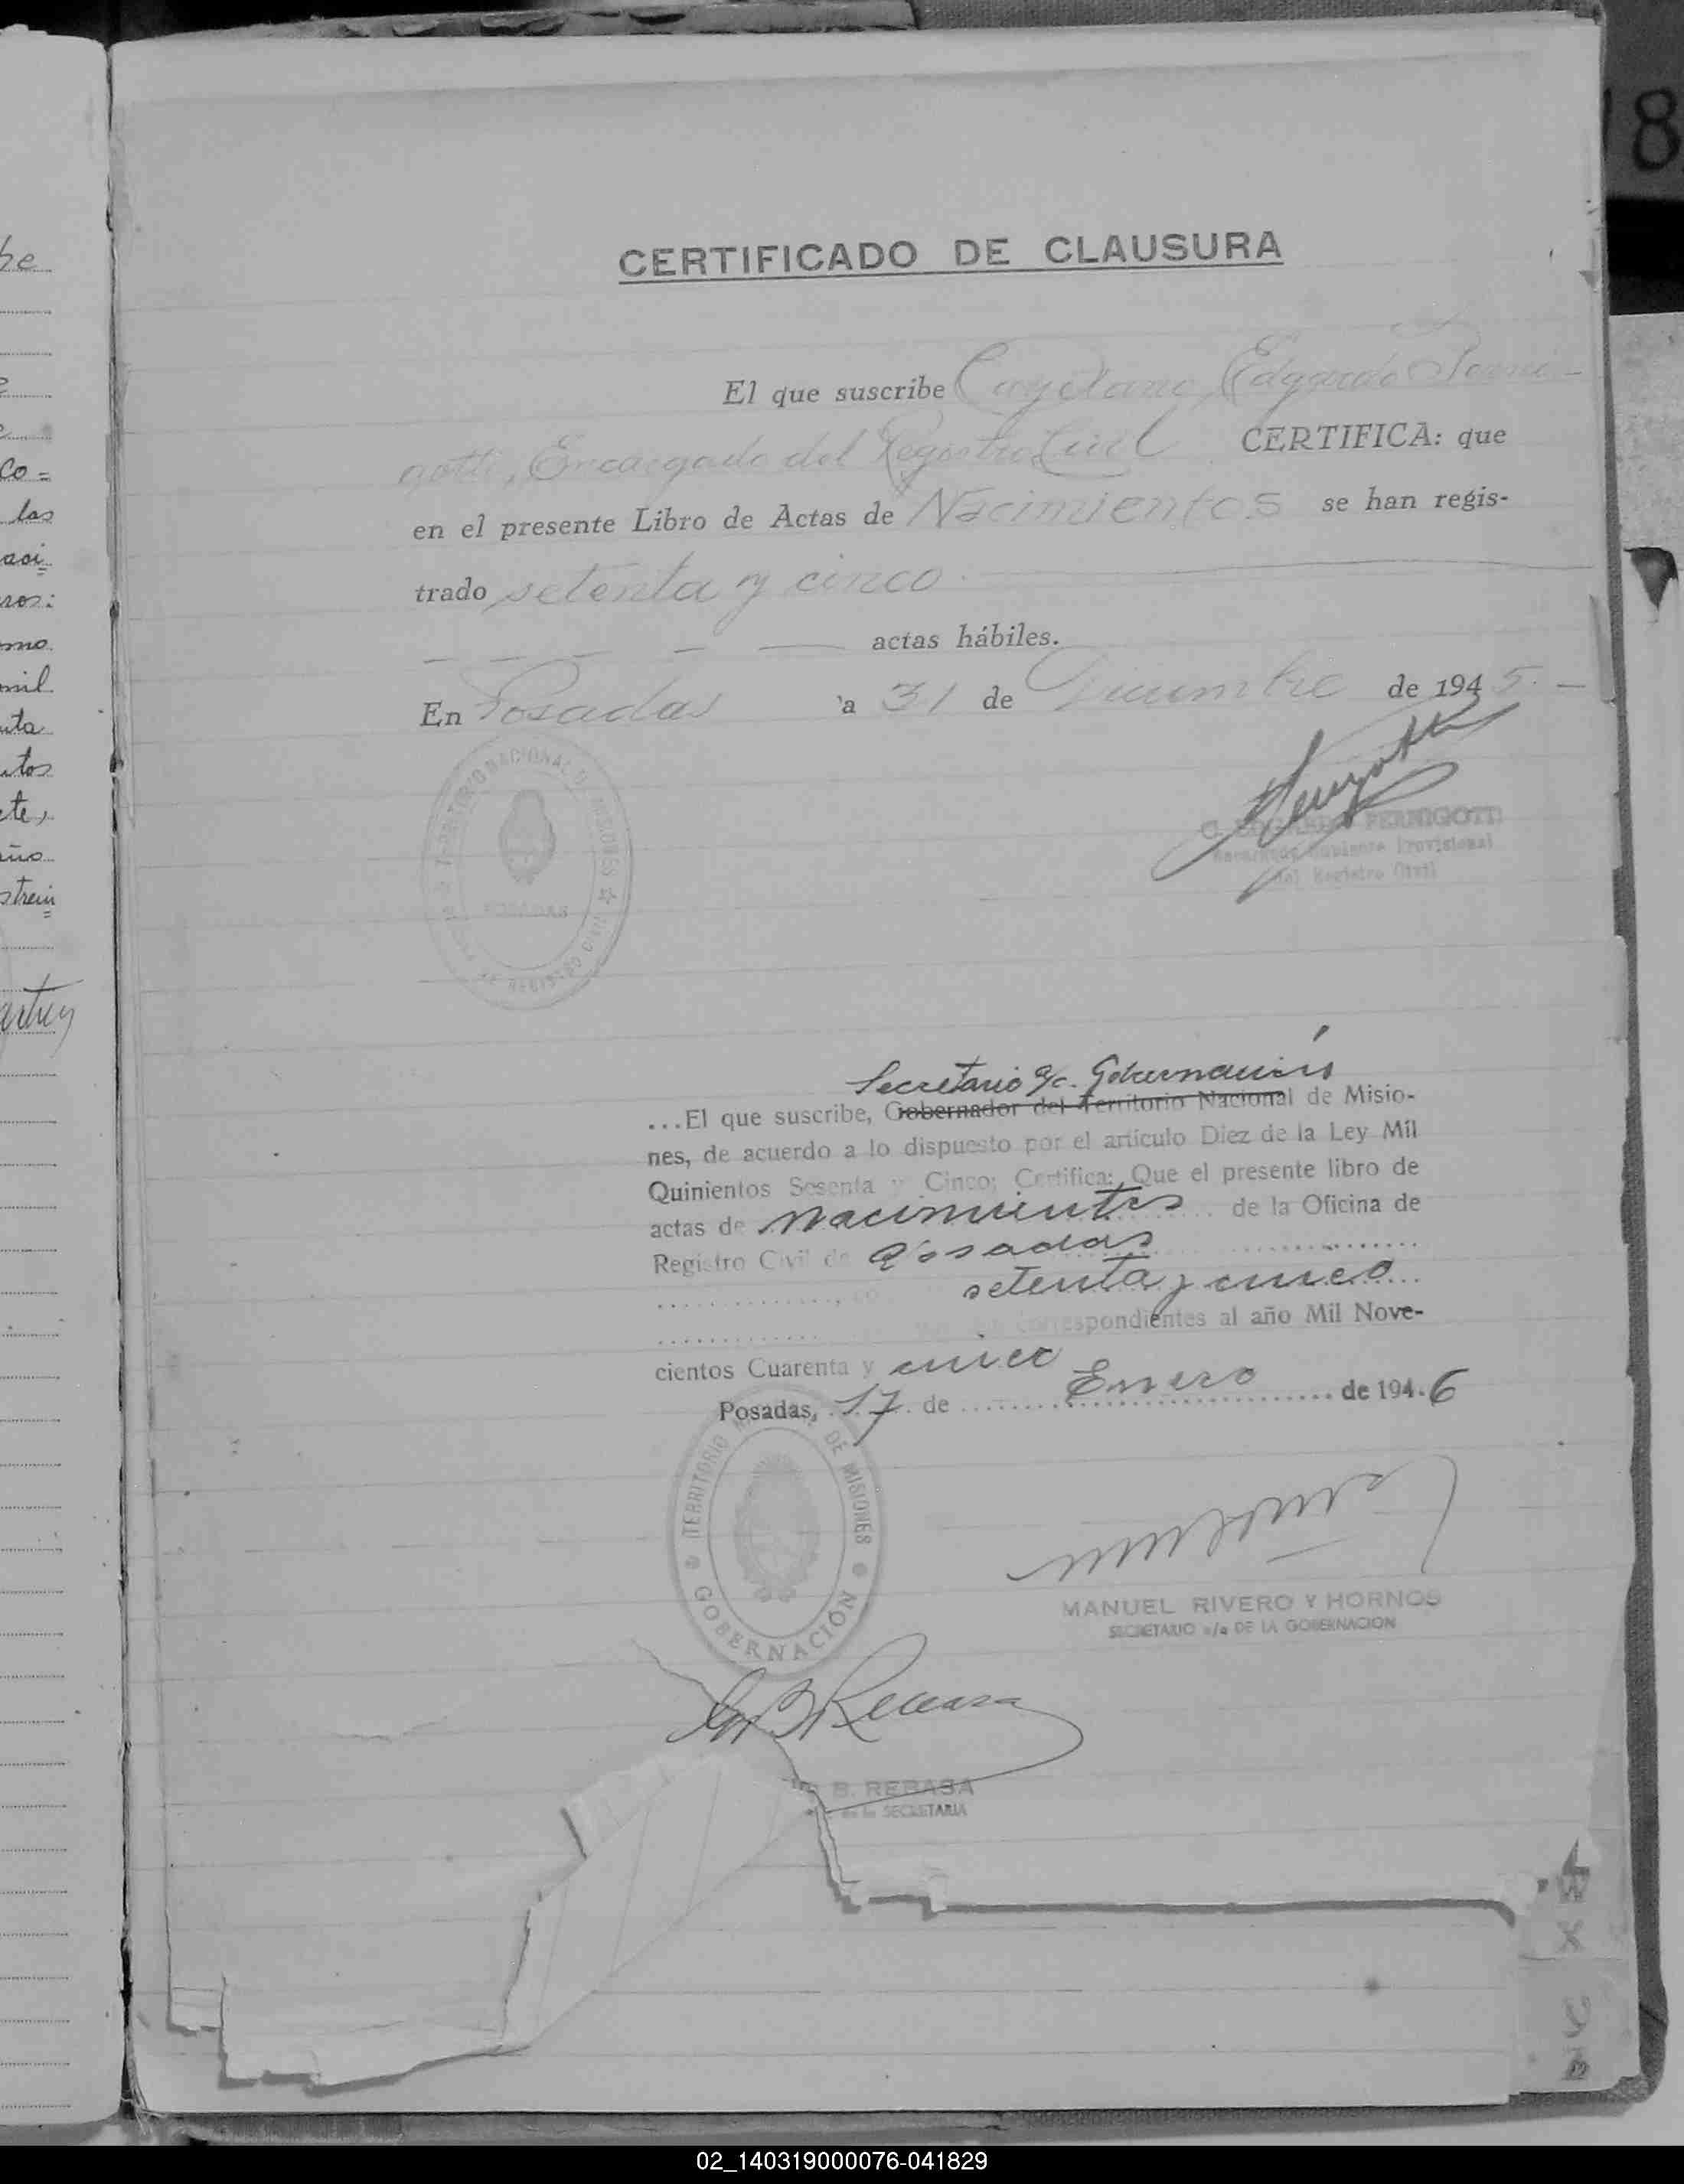 CERTIFICADO DE CLAUSURA
El que suscribe Cayetano Edgardo Perni-
gotti, Encargado del Registro Civil CERTIFICA: que
en el presente Libro de Actas de Nacimientos se han regis-
trado setenta y cinco
actas hábiles.
En Posadas a 31 de Diciembre de 1945.
TERRITORIO NACIONAL DE MISIONES
POSADAS
C. EDGARDO PERNIGOTTI
Encargado Suplente Provisional
del Registro Civil
Secretario a/c. Gobernación
...El que suscribe, Gobernador del Territorio Nacional de Misio-
nes, de acuerdo a lo dispuesto por el artículo Diez de la Ley Mil
Quinientos Sesenta y Cinco; Certifica: Que el presente libro de
actas de Nacimientos de la Oficina de
Registro Civil de Posadas
setenta y cinco
correspondientes al año Mil Nove-
cientos Cuarenta y cinco
Posadas, 17 de Enero de 194.6
TERRITORIO NACIONAL DE MISIONES
GOBERNACIÓN
MANUEL RIVERO Y HORNOS
SECRETARIO a/c DE LA GOBERNACION
B. REBASA
SECRETARIA
be
co=
las
mo
mil
8
02_140319000076-041829